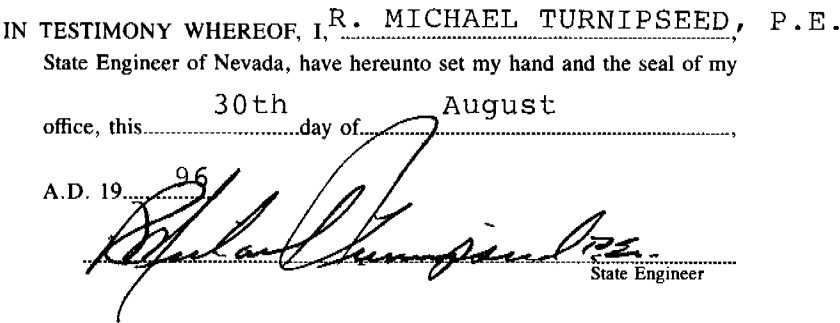 IN TESTIMONY WHEREOF, I, R. MICHAEL TURNIPSEED, P.E.
State Engineer of Nevada, have hereunto set my hand and the seal of my
office, this 30th day of August,
A.D. 19 96
R Michael Turnipseed P.E.
State Engineer